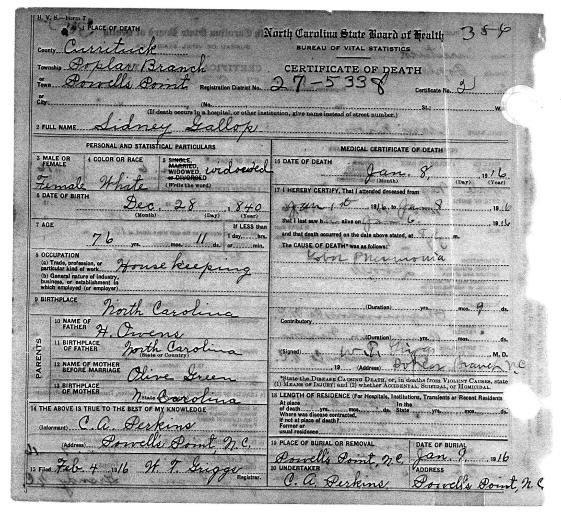 1 PLACE OF DEATH
North Carolina State Board of Health
356
County Currituck
BUREAU OF VITAL STATISTICS
Township Poplar Branch
CERTIFICATE OF DEATH
or Town Powells Point
Registration District No. 27-5338
Certificate No. 2
or City
(No.
St.;
W
(If death occurs in a hospital, or other institution, give name instead of street number.)
2 FULL NAME Sidney Gallop
PERSONAL AND STATISTICAL PARTICULARS
MEDICAL CERTIFICATE OF DEATH
3 MALE OR FEMALE
4 COLOR OR RACE
5 SINGLE, MARRIED, WIDOWED, or DIVORCED (Write the word)
widowed
Female
White
16 DATE OF DEATH
Jan. 8, 1916
(Month) (Day) (Year)
6 DATE OF BIRTH
Dec. 28 1840
(Month) (Day) (Year)
17 I HEREBY CERTIFY, That I attended deceased from
1916 to Jan 8 1916
that I last saw h alive on Jan 6
and that death occurred on the date above stated, at m.
The CAUSE OF DEATH* was as follows:
Lobar Pneumonia
7 AGE
If LESS than 1 day, hrs. or min.
76 yrs. mos. 11 ds.
8 OCCUPATION
(a) Trade, profession, or particular kind of work.
House keeping
(b) General nature of industry, business, or establishment in which employed (or employer)
(Duration) yrs. mos. 9 ds.
Contributory
(Duration) yrs. mos. ds.
9 BIRTHPLACE
North Carolina
PARENTS
10 NAME OF FATHER
H. Owens
11 BIRTHPLACE OF FATHER
North Carolina
(State or Country)
12 NAME OF MOTHER BEFORE MARRIAGE
Olive Green
13 BIRTHPLACE OF MOTHER
N. Carolina
(Signed) M. D.
19 (Address)
*State the DISEASE CAUSING DEATH; or, in deaths from VIOLENT CAUSES, state (1) MEANS OF INJURY; and (2) whether ACCIDENTAL, SUICIDAL, or HOMICIDAL.
18 LENGTH OF RESIDENCE (For Hospitals, Institutions, Transients or Recent Residents
At place of death yrs. mos. ds.
In the State yrs. mos. ds.
Where was disease contracted, if not at place of death?
Former or usual residence
14 THE ABOVE IS TRUE TO THE BEST OF MY KNOWLEDGE
(Informant) C. A. Perkins
(Address) Powells Point, N.C.
19 PLACE OF BURIAL OR REMOVAL
DATE OF BURIAL
Powells Point, N.C.
Jan. 9, 1916
15 Filed Feb. 4 1916 W. T. Griggs
Registrar.
20 UNDERTAKER
ADDRESS
C. A. Perkins
Powell's Point, N.C.